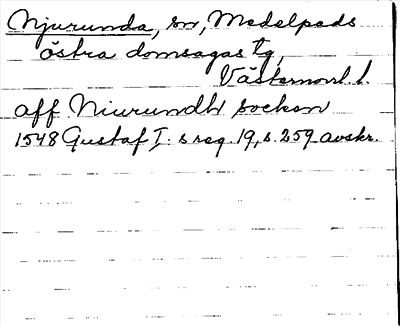 Njurunda, sn, Medelpads
östra domsagas tg,
Västernorrl. l.
aff Niurundh sockan
1548 Gustaf I:s reg. 19, s. 259 avskr.